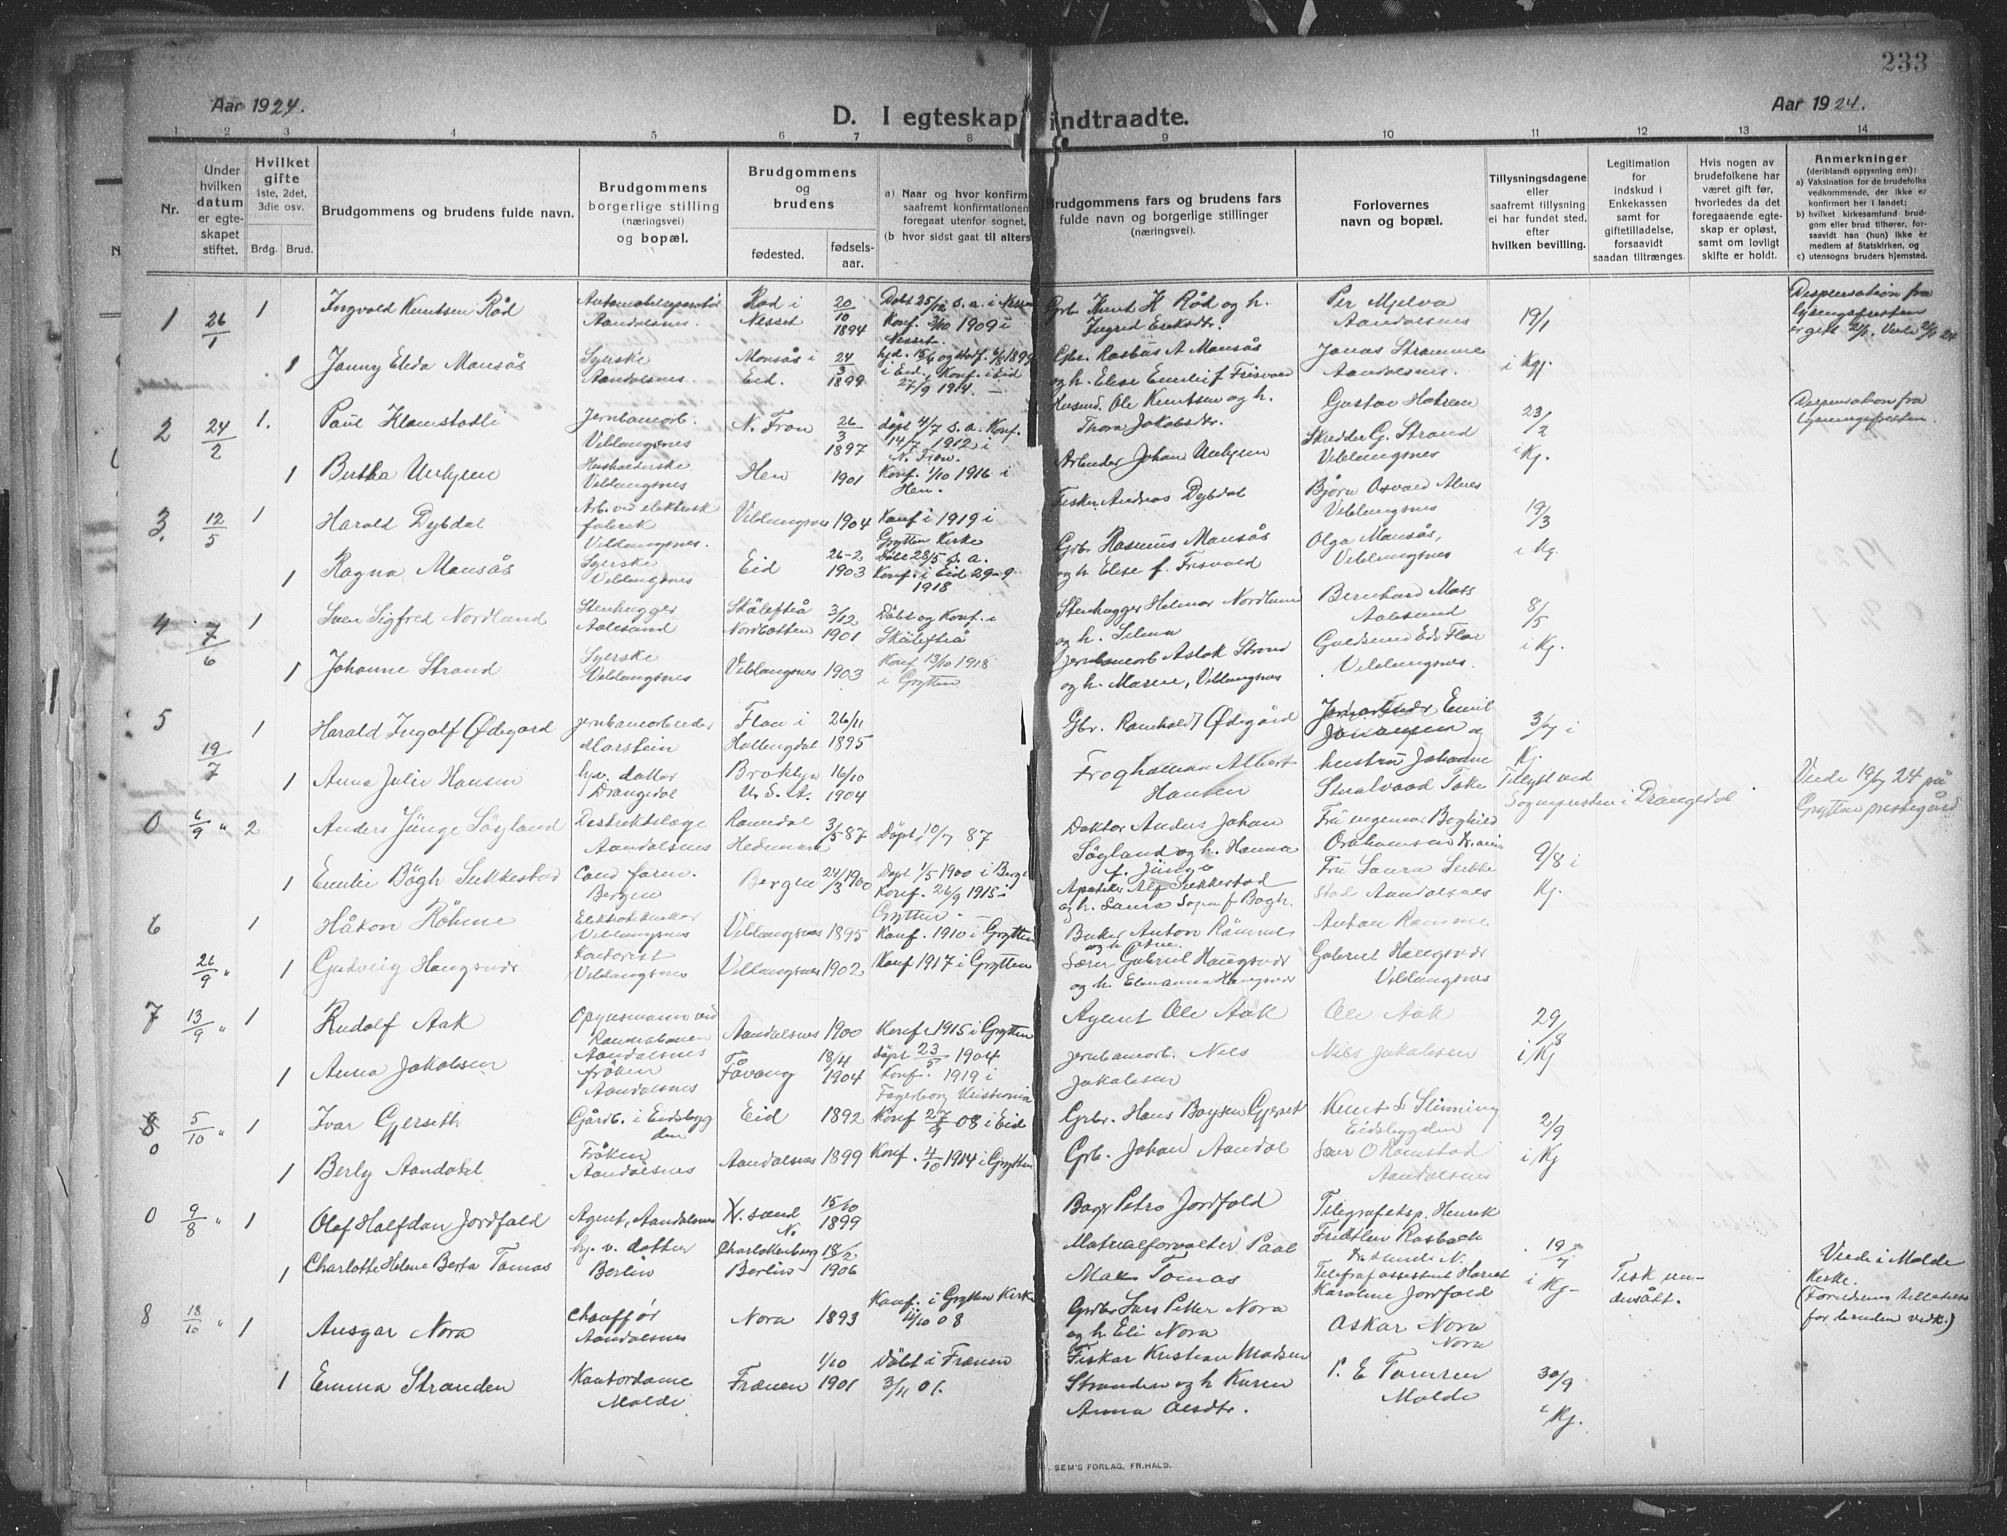 233
Aar 1924.
D. I egteskap indtraadte.
Aar 1924.
1 2 3 4 5 6 7 8 9 10 11 12 13 14
Nr.
Under hvilken datum er egteskapet stiftet.
Hvilket gifte 1ste, 2det, 3die osv.
Brdg. Brud.
Brudgommens og brudens fulde navn.
Brudgommens borgerlige stilling (næringsvei) og bopæl.
Brudgommens og brudens
fødested.
fødselsaar.
a) Naar og hvor konfirm
saafremt konfirmationen
foregaat utenfor sognet,
(b hvor sidst gaat til alters
Brudgommens fars og brudens fars
fulde navn og borgerlige stillinger
(næringsvei).
Forlovernes navn og bopæl.
Tillysningsdagene eller saafremt tillysning ei har fundet sted, efter hvilken bevilling.
Legitimation for indskud i Enkekassen samt for giftetilladelse, forsaavidt saadan tiltrænges.
Hvis nogen av brudefolkene har været gift før, hvorledes da det foregaaende egteskap er opløst, samt om lovligt skifte er holdt.
Anmerkninger
(deriblandt opjysning om):
a) Vaksination for de brudefolks vedkommende, der ikke er konfirmert her i landet;
b) hvilket kirkesamfund brudgom eller brud tilhører, forsaavidt han (hun) ikke er medlem af Statskirken, og
c) utensogns bruders hjemsted.
1 26/1 1 Ingvald Knutsen Råd
Aandalsnes. Rød i Nesset 20/10 1894
Døbt 25/12 s. a. i Nesset
Konf. 3/10 1909 i Nesset.
Grb. Knut H Rød og h.
Ingrid Eriksdtr.
Per Mjelva
Aandalsnes
19/1
i Kgj.
Dispensation fra
lysningsfristen
1 Janny Elida Mansås
Syerske
Aandalsnes.
Monsås i Eid. 24/3 1899
i Eid, Konf. i Eid
27/9 1914. —
Gbr. Rasmus A Mansås
og h. Elise Emilie f. Frisvold
Jonas Stramme
Aandalsnes.
2 24/2 1. Paul Klomstadli
Jernbanearb.
Veblungsnes
N. Fron 26/3 1897
døpt 4/7 s. a. Konf.
14/7 1912 i
N. Fron.
Husmd. Ole Knutsen og h.
Thora Jakobsdtr.
Gustav Hatren
23/2
i Kj.
Dispensation fra
lysningsfristen.
1 Bertha Unhjem
Husholderske
Veblungsnes
Hen 1901
Konf. 1/10 1916 i
Hen.
Arbeider Johan Unhjem
Skredder G. Strand
Veblungsnes
3. 12/5 1 Harald Dybdal
Arb. ved elektrisk
fabrik
Veblungsnes.
Veblungsnes 1904
Konf i 1919 i
Grytten Kirke
Fisker Andreas Dybdal
Bjørn Osvald Alnes
Veblungsnes
19/3
i Kg.
1 Ragna Mansås
Syerske
Veblungsnes
Eid 26-2 1903
Døbt 28/5 s. a.
Konf. i Eid 29-9
1918
Grbr. Rasmus Mansås
og h Elise f. Frisvold
Olga Mansås,
Veblungsnes
4 7/6 1 Sven Sigfred Nordland
Stenhugger
Aalesund
Skälefteå
Norbotten
3/12 1901
Döbt og Konf. i
Skälefteå
Stenhugger Helmer Nordlund
og h. Selma
Bernhard Mats
Aalesund
8/5
i Kj.
1 Johanne Strand
Syerske
Veblungsnes
Veblungsnes 1903
Konf 13/10 1918
i Grytten
Jernbanearb Aslak Strand
og h. Maren, Veblungsnes
Veblungsnes.
5 19/7 1 Harald Ingolf Ødegård
Jernbanearbeider
Marstein
Flaa i
Hallingdal
26/11 1895
Gbr. Ramhald Ødegård
Emil
Johansen og
hustru Johanne
3/7 i
Kj.
1 Anna Julie Hansen
hjv. datter
Drangedal
Broklyn
U. S. A.
16/10 1904
Albert
Hansen
Tillyst ved
Sognepresten i Drangedal
Viede 19/7 24 på
Grytten prestegård
0 6/9 " 2 Anders Jünge Søyland
Distriktslæge
Aandalsnes
Romedal
Hedemark
3/5 87
Döpt 10/7 87
Doktor Anders Johan
Söyland og h. Hanna
f. Jünge
9/8 i
Kj.
1 Emilie Bögh Sukkestad
Cand farm.
Bergen
Bergen 24/3 1900
Döpt 1/5 1900 i Berge
Konf. 26/9 1915 i
Grytten —
Apoteker Alf Sukkestad
og h. Laura Sofia f Bøgh.
Fru Laura Sukke
stad Aandalsnes
6 26/9 " 1 Håkon Röhme
Elektrotekniker
Veblungsnes
Veblungsnes 1895
Konf. 1910 i Grytten
Baker Anton Römme
Anton Römme
1 Gudveig Haugsnes
Kontorist
Veblungsnes
Veblungsnes 1902
Konf 1917 i Grytten
Lærer Gabriel Haugsnes
Gabriel Haugsnes
Veblungsnes
7 13/9 " 1 Rudolf Aak
Opsynsmann ved
Raumabanen
Aandalsnes
Aandalsnes 1900
Konf i 1915 i Grytten
Agent Ole Aak
Ole Aak
29/8
i Kj
1 Anna Jakobsen
frøken
Aandalsnes
Fåvang
18/4 1904
döpt 23/5 1904
Konf. 1919 i
Fagerborg Kristiania
Jernbanearb. Nils
Jakobsen
Nils Jakobsen
8 0 5/10 " 1 Ivar Gjerseth
Gårdb. i Eidsbygden
Eid 1892
Konf 27/9 08 i Eid
Grbr. Hans Boysen Gjerset
Knut L Slinning
Eidsbygden
2/9
i Kj
1 Berly Aandahl
Frøken
Aandalsnes
Aandalsnes 1899
Konf. 4/10 1914 i Grytten
Grb. Johan Aandal
Aandalsnes
0 9/8 " 1 Olaf Halfdan Jordfald
Agent, Aandalsnes
Kr. sund
N.
15/10 1899
Bager Petro Jordfald
Telegrafetsp. Henrik
19/7
i Kj—
1 Charlotte Helene Berta Tomas
hj. v. datter
Berlin
Charlottenburg
Berlin
18/2 1906
Materialforvalter Paal
Max Tomas
Kr.sund N.
Telefafassistent Harriet
Karoline Jordfald
Viede i Molde
Kirke.
8 18/10 " 1 Ansgar Nora
Chauffør
Aandalsnes
Nora 1893
Konf. i Grytten Kirke
11/10 08
Grdbr Lars Petter Nora
og h Eli Nora
Oskar Nora
Nora
30/9
i Kj.
1 Emma Stranden
Kontordame
Molde
Frænen
1/10 1901
Döbt i Frænen
3/11 01.
Fisker Kristian Madsen
Stranden og h Karen
Anna Olsdtr.
P. E Tomren
Molde
SEM'S FORLAG, FR.HALD.